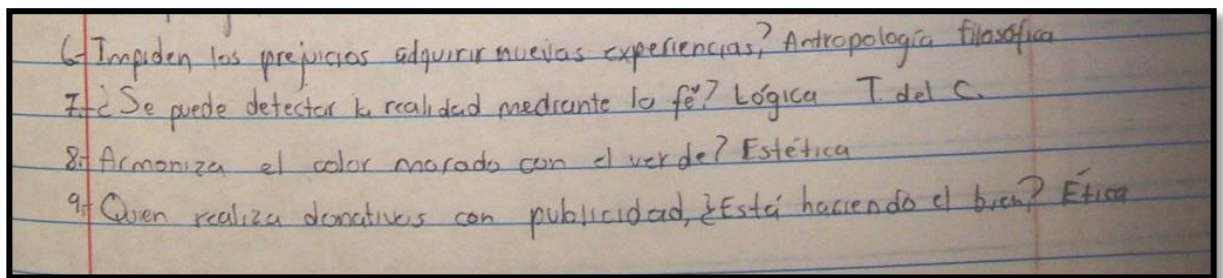 6.- Impiden los prejuicios adquirir nuevas experiencias? Antropología filosófica
7.- ¿Se puede detectar la realidad mediante la fé? Lógica T. del C.
8.- Armoniza el color morado con el verde? Estética
9.- Quien realiza donativos con publicidad, ¿Está haciendo el bien? Ética